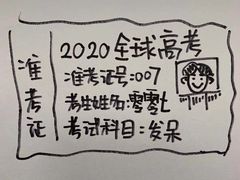 准考证
2020全球高考
准考证号:007
考生姓名:零零七
考试科目:发呆